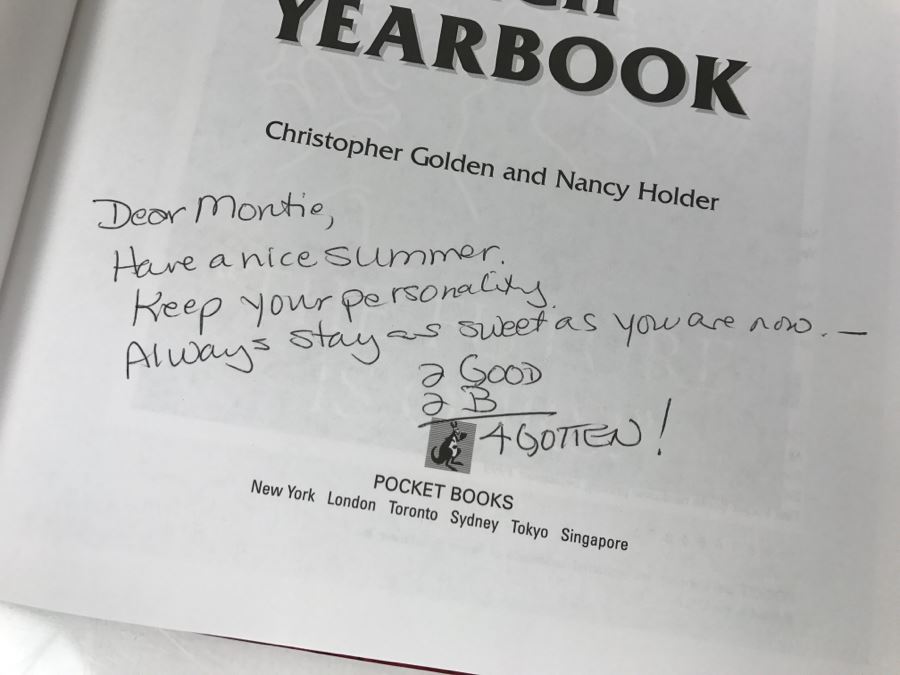 YEARBOOK
Christopher Golden and Nancy Holder
Dear Montie,
Have a nice summer.
Keep your personality.
Always stay as sweet as you are now. —
2 GOOD
2 B
4 GOTTEN!
POCKET BOOKS
New York London Toronto Sydney Tokyo Singapore